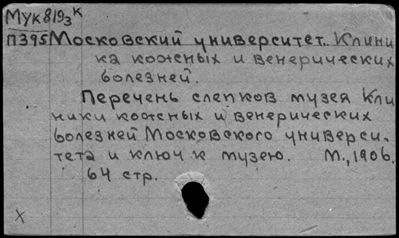 Мук 819з к
П395 Московский университет. Клини
ка кожных и венерических
болезней.
Перечень слепков музея Кли
ники кожных и венерических
болезней Московского универси-
тета и ключ к музею. М., 1906.
64 стр.
X